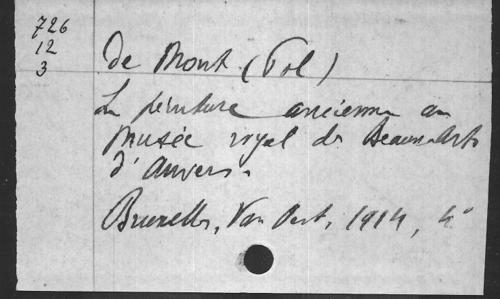 726
12
3
de Mont (Pol)
La peinture ancienne au
Musée royal des Beaux-Arts
d'Anvers.
Bruxelles, Van Oest, 1914, 4°